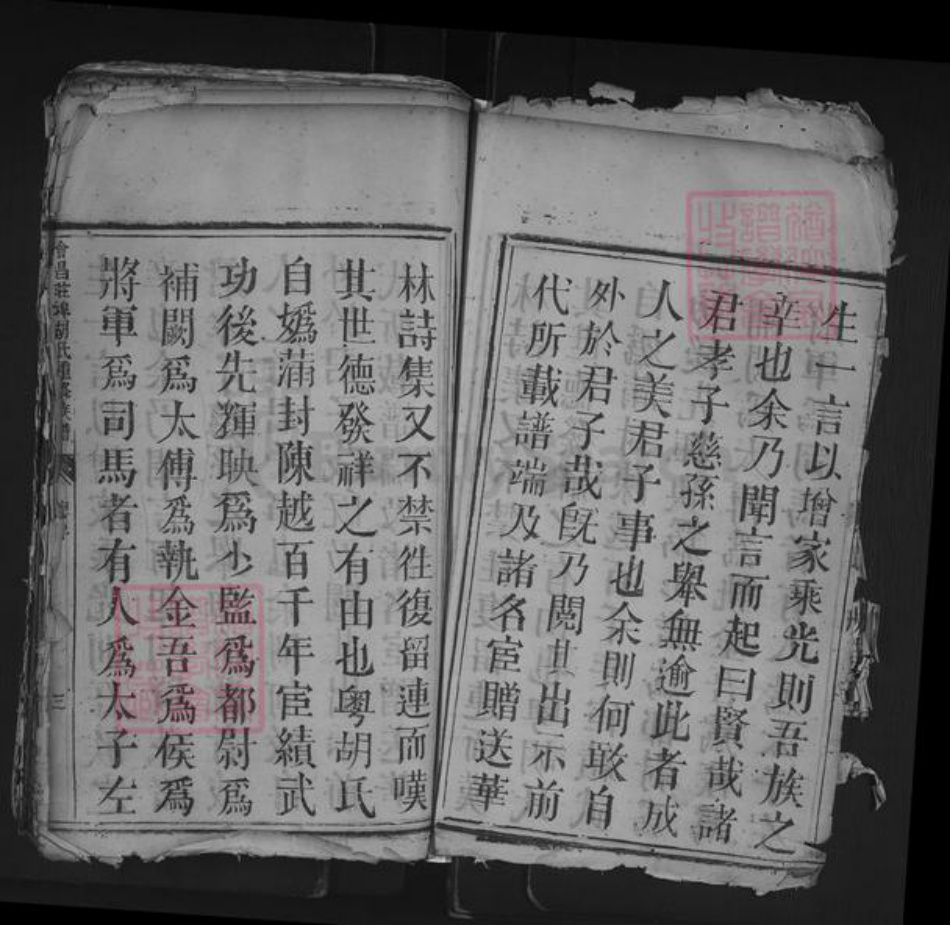 生一言以增家乘光則吾族之
幸也余乃聞言而起曰賢哉諸
君孝子慈孫之舉無逾此者成
人之美君子事也余則何敢自
外於君子哉旣乃閱其出示前
代所載譜端及諸名宦贈送華
林詩集又不禁徃復留連而嘆
其世德發祥之有由也粤胡氏
自嬀蒲封陳越百千年宦績武
功後先輝映爲少監爲都尉爲
補闕爲太傅爲執金吾爲侯爲
將軍爲司馬者有人爲太子左
會昌莊埠胡氏重修族譜 三